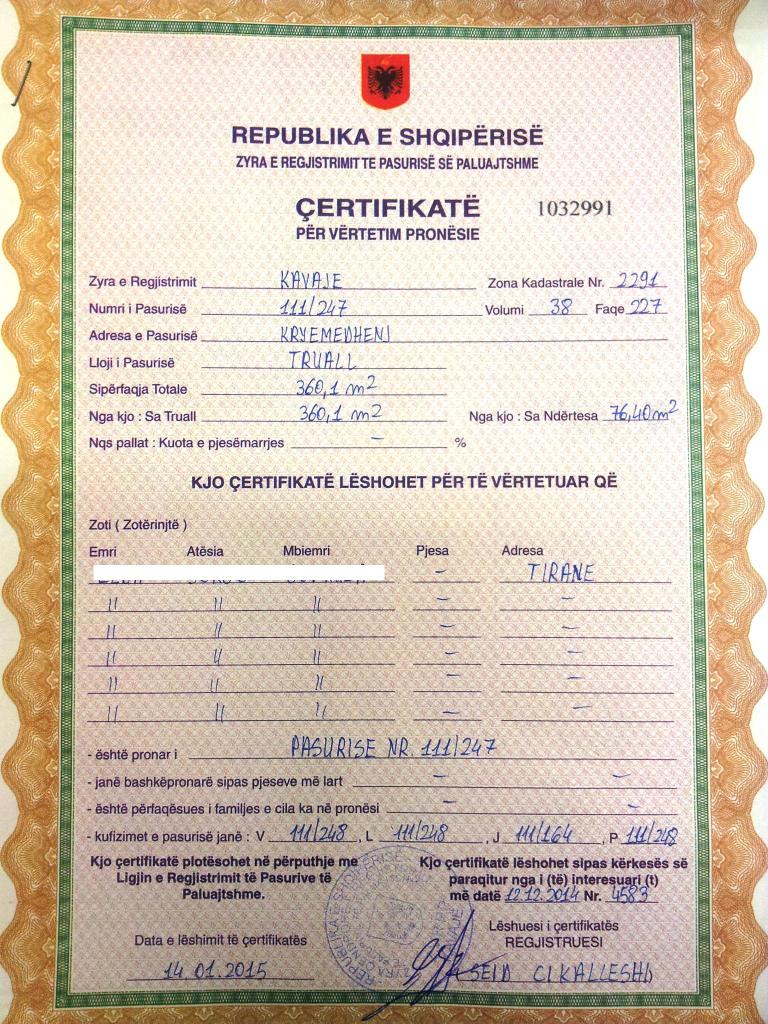 REPUBLIKA E SHQIPËRISË
ZYRA E REGJISTRIMIT TE PASURISË SË PALUAJTSHME
ÇERTIFIKATË 1032991
PËR VËRTETIM PRONËSIE
Zyra e Regjistrimit KAVAJE Zona Kadastrale Nr. 2291
Numri i Pasurisë 111/247 Volumi 38 Faqe 227
Adresa e Pasurisë KRYEMEDHENJ
Lloji i Pasurisë TRUALL
Sipërfaqja Totale 360,1 m2
Nga kjo : Sa Truall 360,1 m2 Nga kjo : Sa Ndërtesa 76,40 m2
Nqs pallat : Kuota e pjesëmarrjes - %
KJO ÇERTIFIKATË LËSHOHET PËR TË VËRTETUAR QË
Zoti ( Zotërinjtë )
Emri Atësia Mbiemri Pjesa Adresa
- TIRANE
" " " - -
" " " - -
" " " - -
" " " - -
" " " - -
- është pronar i PASURISE NR. 111/247
- janë bashkëpronarë sipas pjeseve më lart - -
- është përfaqësues i familjes e cila ka në pronësi - -
- kufizimet e pasurisë janë : V 111/248 , L 111/248 , J 111/164 , P 111/248
Kjo çertifikatë plotësohet në përputhje me
Ligjin e Regjistrimit të Pasurive të
Paluajtshme.
Kjo çertifikatë lëshohet sipas kërkesës së
paraqitur nga i (të) interesuari (t)
më datë 12.12.2014 Nr. 4583
Data e lëshimit të çertifikatës
14.01.2015
Lëshuesi i çertifikatës
REGJISTRUESI
SEID CIKALLESHI